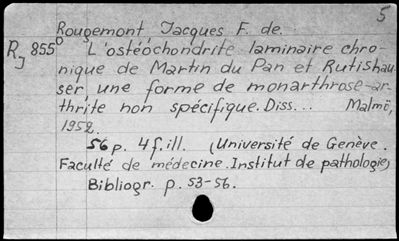 5
Rougemont, Jacques F. de.
RJ 855° L'ostéochondrite laminaire chro-
nique de Martin du Pan et Rutishau-
ser, une forme de monarthrose-ar-
thrite non spécifique. Diss... Malmö,
1952.
56 p. 4 f. ill. (Université de Genève.
Faculté de médecine. Institut de pathologie)
Bibliogr. p. 53-56.